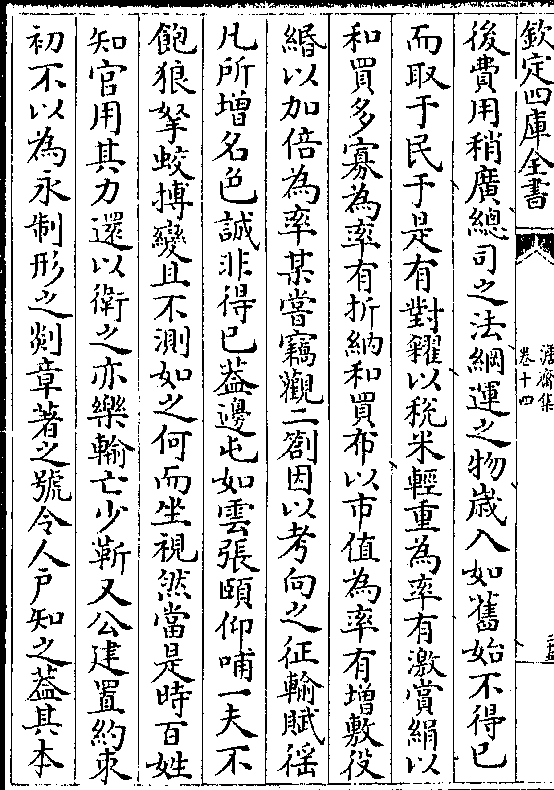 欽定四庫全書
卷十四
後費用稍廣總司之法綱運之物歲入如舊始不得已
而取于民于是有對糴以稅米輕重為率有激賞絹以
和買多寡為率有折納和買布以市值為率有增敷役
緡以加倍為率某嘗竊觀二劄因以考向之征輸賦徭
凡所增名色誠非得已葢邊屯如雲張頤仰哺一夫不
飽狼拏蛟搏變且不測如之何而坐視然當是時百姓
知官用其力還以衛之亦樂輸亡少靳又公建置約束
初不以為永制形之剡章著之號令人戶知之葢其本